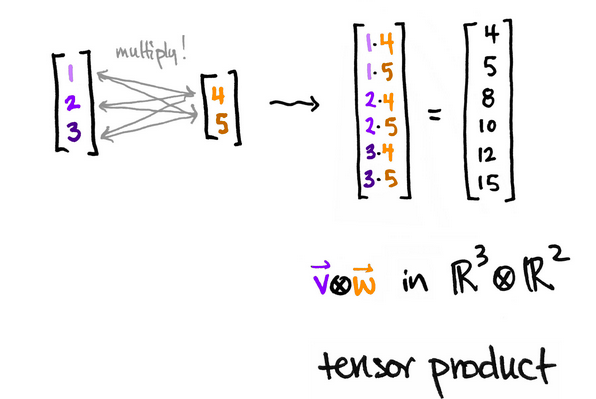 multiply!
1
2
3
4
5
1·4
1·5
2·4
2·5
3·4
3·5
=
4
5
8
10
12
15
v⃗⊗w⃗ in ℝ³⊗ℝ²
tensor product